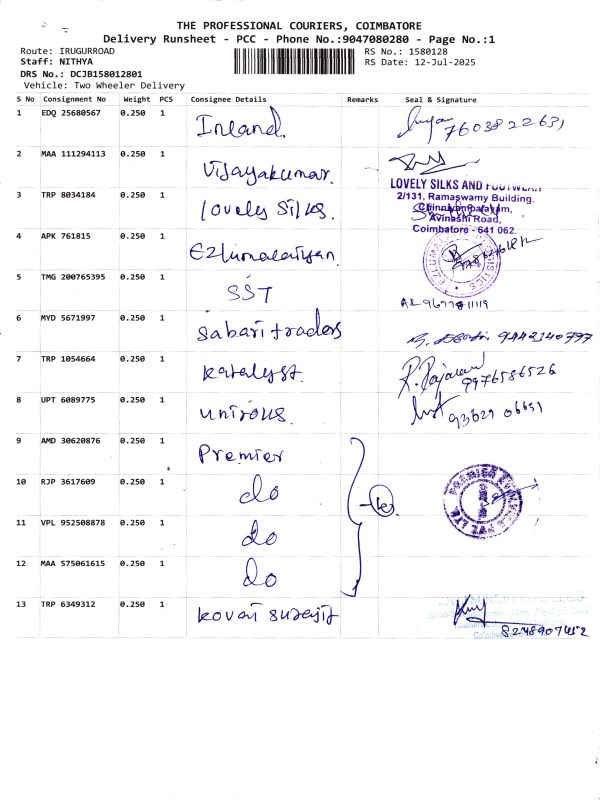 THE PROFESSIONAL COURIERS, COIMBATORE
Delivery Runsheet - PCC - Phone No.:9047080280 - Page No.:1
Route: IRUGURROAD
RS No.: 1580128
Staff: NITHYA
RS Date: 12-Jul-2025
DRS No.: DCJB158012801
Vehicle: Two Wheeler Delivery
S No Consignment No Weight PCS Consignee Details Remarks Seal & Signature
1 EDQ 25680567 0.250 1 Inland. 7603822631
2 MAA 111294113 0.250 1 Vijayakumar.
3 TRP 8034184 0.250 1 lovely silks. LOVELY SILKS AND FOOTWEAR
2/131, Ramaswamy Building.
Chinniyampalayam,
Avinashi Road,
Coimbatore - 641 062.
4 APK 761815 0.250 1
5 TMG 200765395 0.250 1 SST
6 MYD 5671997 0.250 1 Sabari traders
7 TRP 1054664 0.250 1 Katalyst. 9976586526
8 UPT 6089775 0.250 1
9 AMD 30620876 0.250 1 Premier
10 RJP 3617609 0.250 1 do
11 VPL 952508878 0.250 1 do
12 MAA 575061615 0.250 1 do
PREMIER PVT LTD
13 TRP 6349312 0.250 1 Kovai